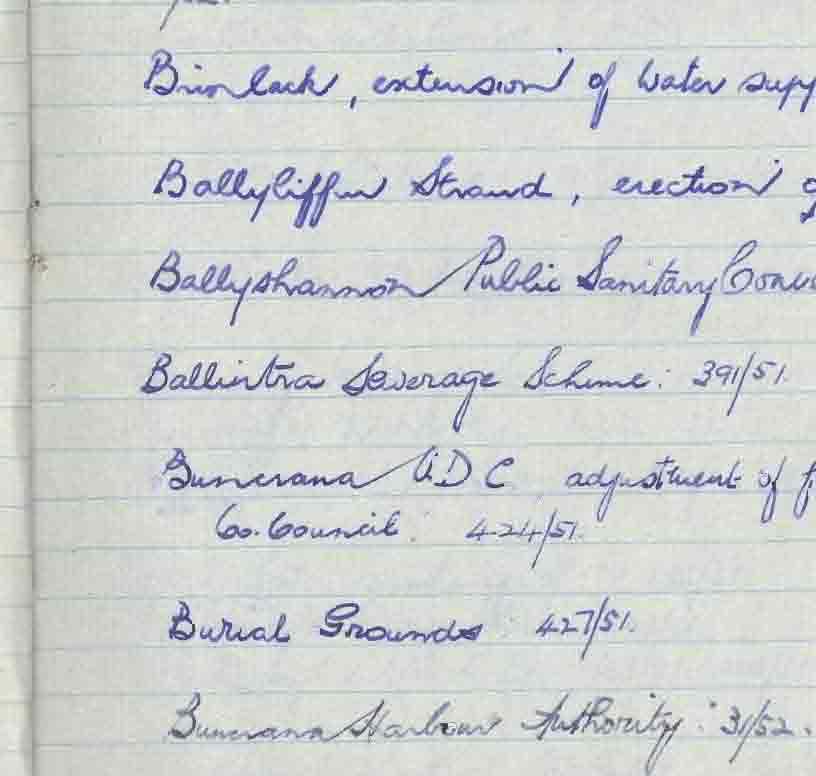 Brinlack, extension of Water supp
Ballyliffin Strand, erection
Ballyshannon Public Sanitary Conv
Ballintra Sewerage Scheme: 391/51.
Buncrana U.D.C. adjustment of f
Co. Council: 424/51.
Burial Grounds: 427/51.
Buncrana Harbour Authority: 31/52.